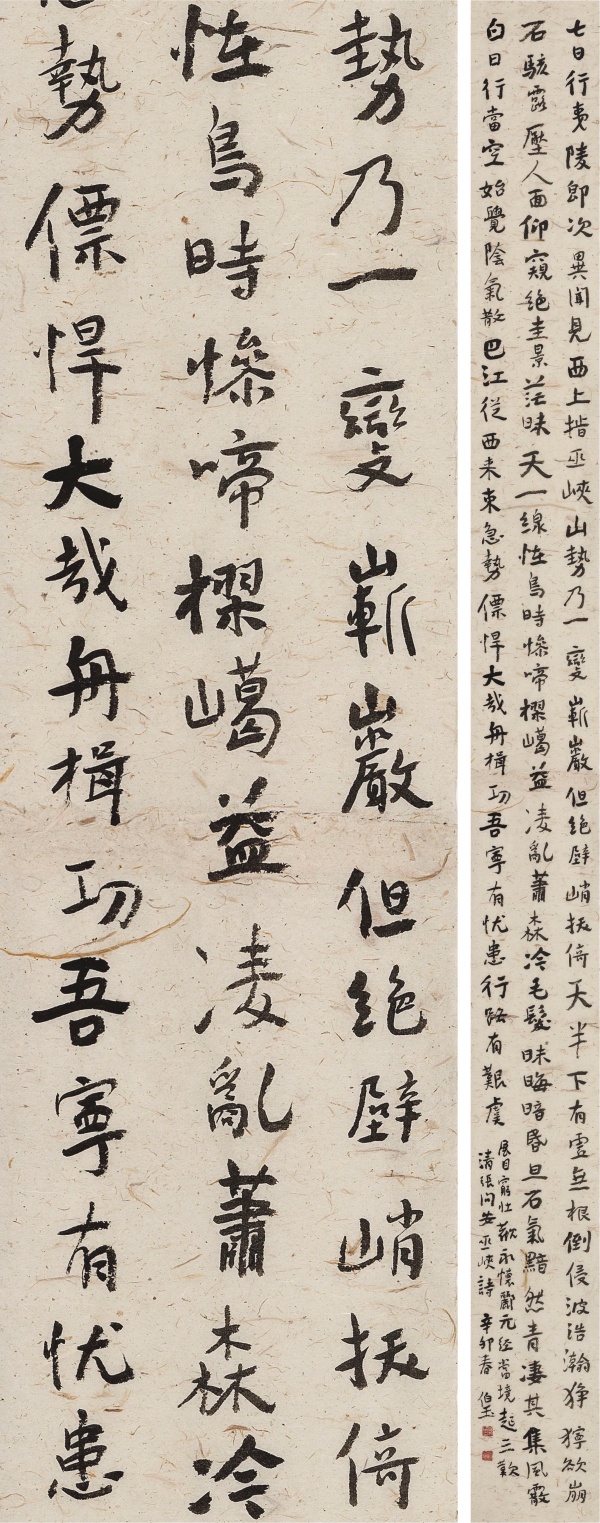 七日行夷陵即次異聞見西上指巫峽山勢乃一變嶄巖但絕壁峭拔倚天半下有雲無根倒侵波浩瀚猙獰欲崩
石駭露壓人面仰窺絕圭景茫昧天一線怪鳥時慘啼樛嶱益凌亂蕭森冷毛髮昧晦暗昏旦石氣黯然青淒其集風霰
白日行當空始覺陰氣散巴江從西來束急勢僄悍大哉舟楫功吾寧有憂患行路有艱虞
展目窮壯歎永懷酈元經當境起三歎
清張問安巫峽詩 辛卯春 伯玉
勢乃一變嶄巖但絕壁峭拔倚
怪鳥時慘啼樛嶱益凌亂蕭森冷
勢僄悍大哉舟楫功吾寧有忧患